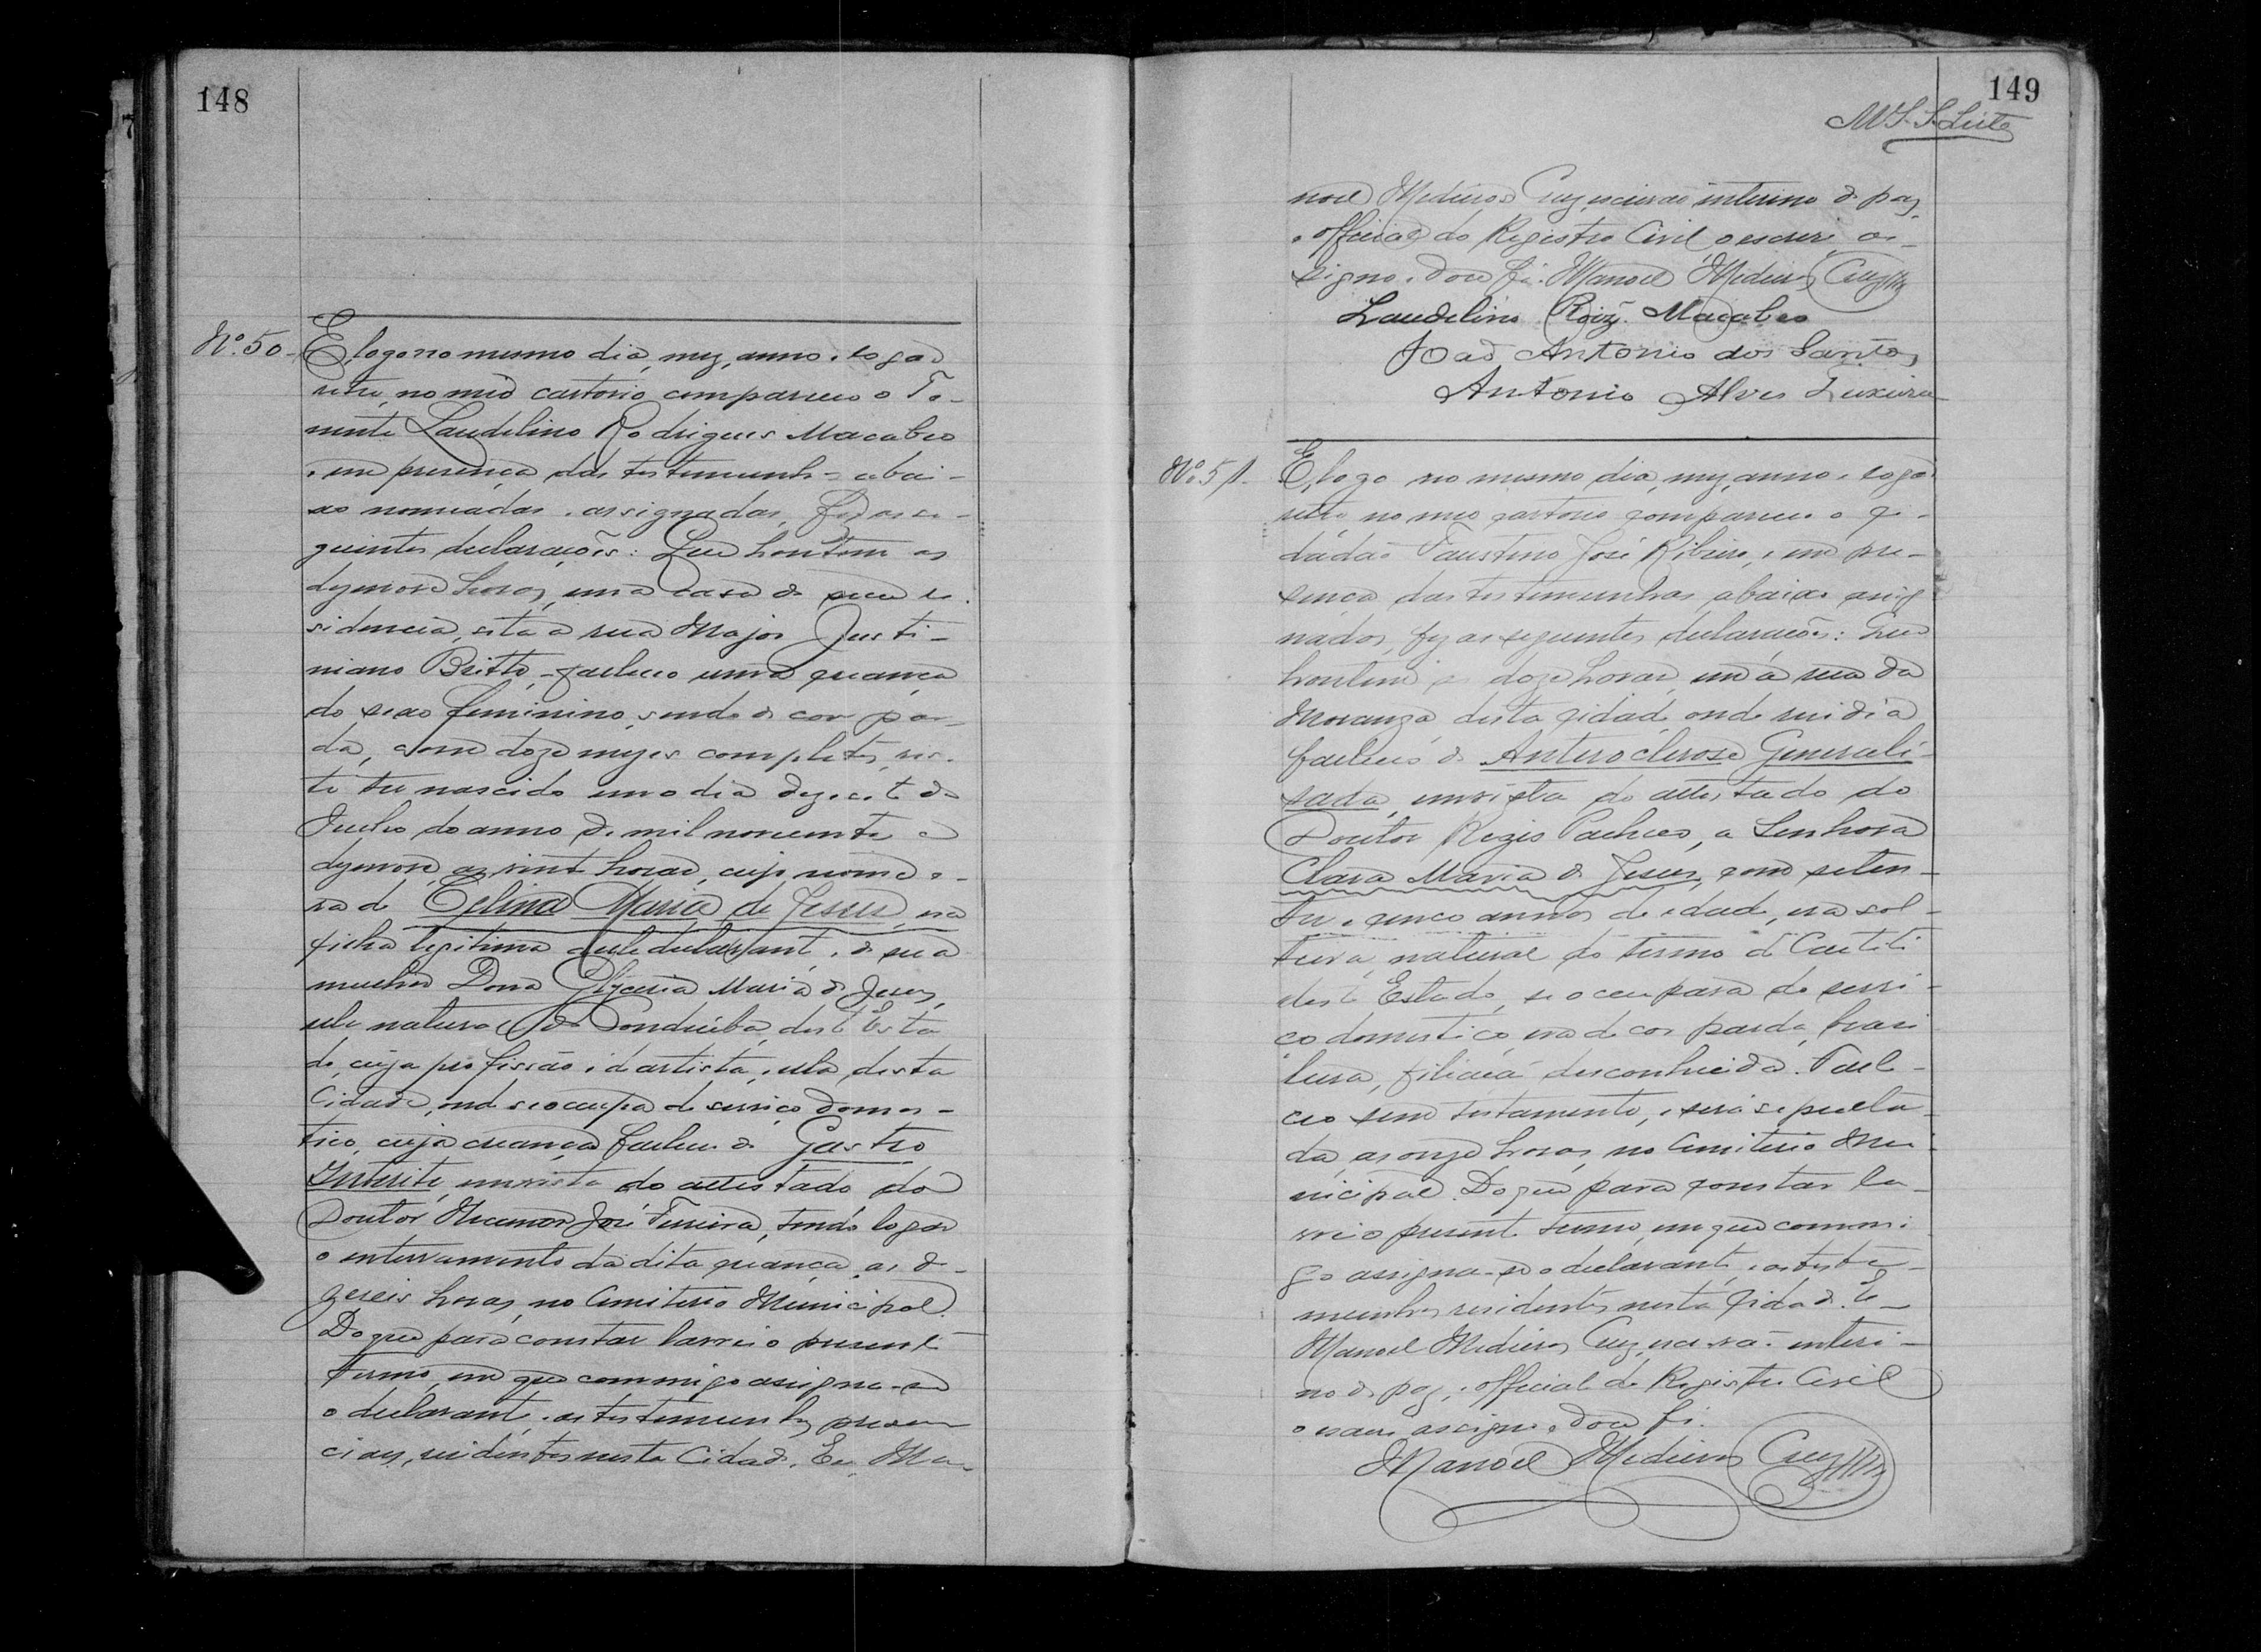 148
Nº 50 - E, logo no mesmo dia, mez, anno e logar
retro, no meo cartorio compareceo o Te-
nente Laudelino Rodrigues Macabeo
e em presença das testemunhas abai-
xo nomeadas e assignadas, fez as se-
guintes declarações: Que hontem as
dezenove horas, em a casa de sua re-
sidencia, sita a rua Major Justi-
niano Britto, falleceo uma creança
do sexo feminino, sendo de cor par-
da, com doze mezes completos, vis-
to ter nascido em o dia dezesete de
Julho do anno de mil novecentos e
dezenove, as vinte horas, cujo nome e-
ra de Celina Maria de Jesus, era
filha legitima delle declarante, e de sua
mulher Dona Glyceria Maria de Jesus,
elle natural de Condeúba, deste Esta
do, cuja profissão é de artista, ella desta
Cidade, onde se occupa de serviço domes-
tico, cuja creança falleceu de Gastro
Interite, em vista do attestado do
Doutor Nicanor José Ferreira, tendo logar
o enterramento da dita creança, as de-
zeseis horas, no Cemiterio Municipal.
Do que para constar lavrei o presente
termo, em que commigo assigna-se
o declarante, e as testemunhas presen
ciaes, residentes nesta Cidade. Eu, Ma-
149
M S. S. Leite
noel Medeiros Cruz, escrivão interino de paz,
e official do Registro Civil o escrevi, as-
signo e dou fé. Manoel Medeiros Cruz
Laudelino Roiz. Macabeo
João Antonio dos Santos
Antonio Alves Teixeira
Nº 51. E, logo no mesmo dia, mez, anno e logar
retro, no meo cartorio compareceo o ci-
dadão Faustino José Ribeiro, e em pre-
sença das testemunhas abaixo assig
nados, fez as seguintes declarações: Que
hontem as doze horas, em a rua da
Morança, desta cidade, onde residia
falleceo de Anteroclerose Generali-
sada, em vista do attestado do
Doutor Regis Pacheco, a Senhora
Clara Maria de Jesus, com seten-
ta e cinco annos de idade, era sol-
teira, natural do termo de Caetité
deste Estado, se occupava de servi-
ço domestico, era de cor parda, brasi
leira, filiação desconhecida. Fale-
ceo sem testamento, e será sepulta-
da, as onze horas, no Cemiterio Mu-
nicipal. Do que para constar la-
vrei o presente termo, em que commi-
go assigna-se o declarante, e as teste-
munhas residentes nesta Cidade. E-
Manoel Medeiros Cruz, escrivão interi-
no de paz, e official do Registro Civil
o escrevi assigno e dou fé.
Manoel Medeiros Cruz